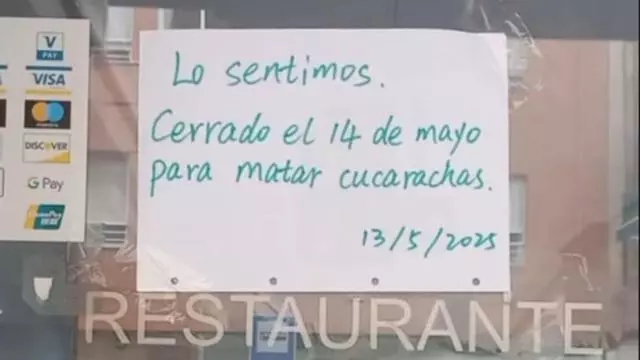 V
PAY
VISA
DISCOVER
G Pay
UnionPay
Lo sentimos.
Cerrado el 14 de mayo
para matar cucarachas.
13/5/2025
RESTAURANTE